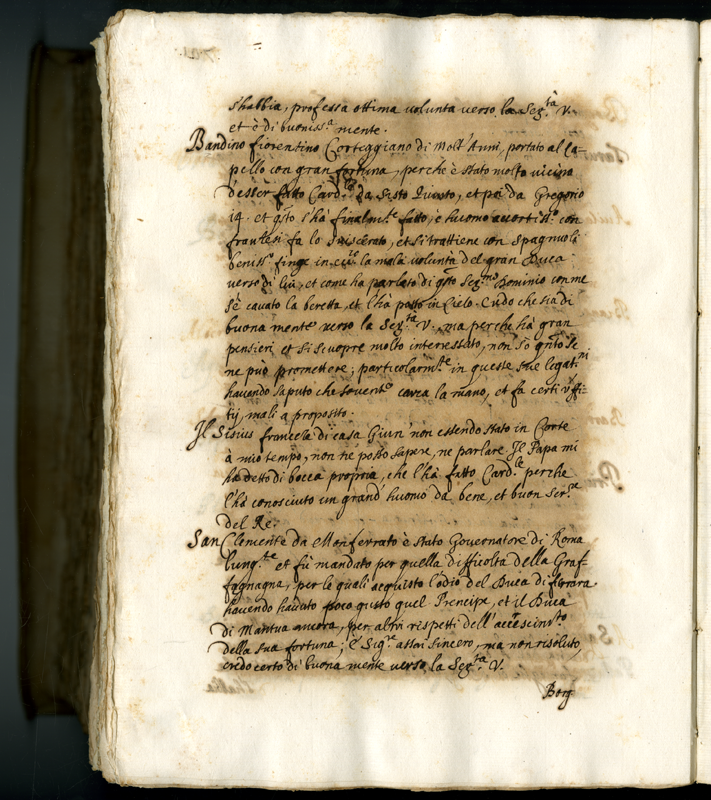 s'habbia, professa ottima volunta verso la Ser.tà V.
et è di buoniss.a mente.
Bandino fiorentino Corteggiano di molt'Anni, portato al Ca-
pello con gran fortuna, perche è stato molto vicino
d'esser fatto Card.le da Sisto Quinto, et poi da Gregorio
14. et q̃sto l'hà finalm.te fatto, è huomo accortiss.o con
franzesi fa lo sviscerato, et si trattiene con spagnuoli
beniss.o finge in la mala voluntà del gran Duca
verso di lui, et come ha parlato di q̃sto Ser.mo Dominio con me
s'è cavato la beretta, et l'hà posto in Cielo. Credo che sia di
buona mente verso la Ser.tà V., ma perche hà gran
pensieri et si scuopre molto interessato, non sò q̃nto se
ne può promettere; particolarm.te in queste sue legat.ni
havendo saputo che carca la mano, et fa certi uffi-
tij, mali a proposito.
Il Sisius francese di casa Giurì non essendo stato in Corte
à mio tempo, non ne posso sapere, ne parlare. Il Papa mi
ha detto di bocca propria, che l'hà fatto Card.le perche
l'hà conosciuto un grand'huomo da bene, et buon ser.re
del Re.
San Clemente da Monferrato è stato Governatore di Roma
lung.te et fù mandato per quella difficolta della Graf-
fagnagna, per le quali acquisto l'odio del Duca di ferrara
havendo hauuto poco gusto quel Prencipe, et il Duca
di Mantua ancora, per altri rispetti dell'accrescim.to
della sua fortuna; è Sig.re assai sincero, ma non risoluto,
credo certo di buona mente verso la Ser.tà V.
Borg